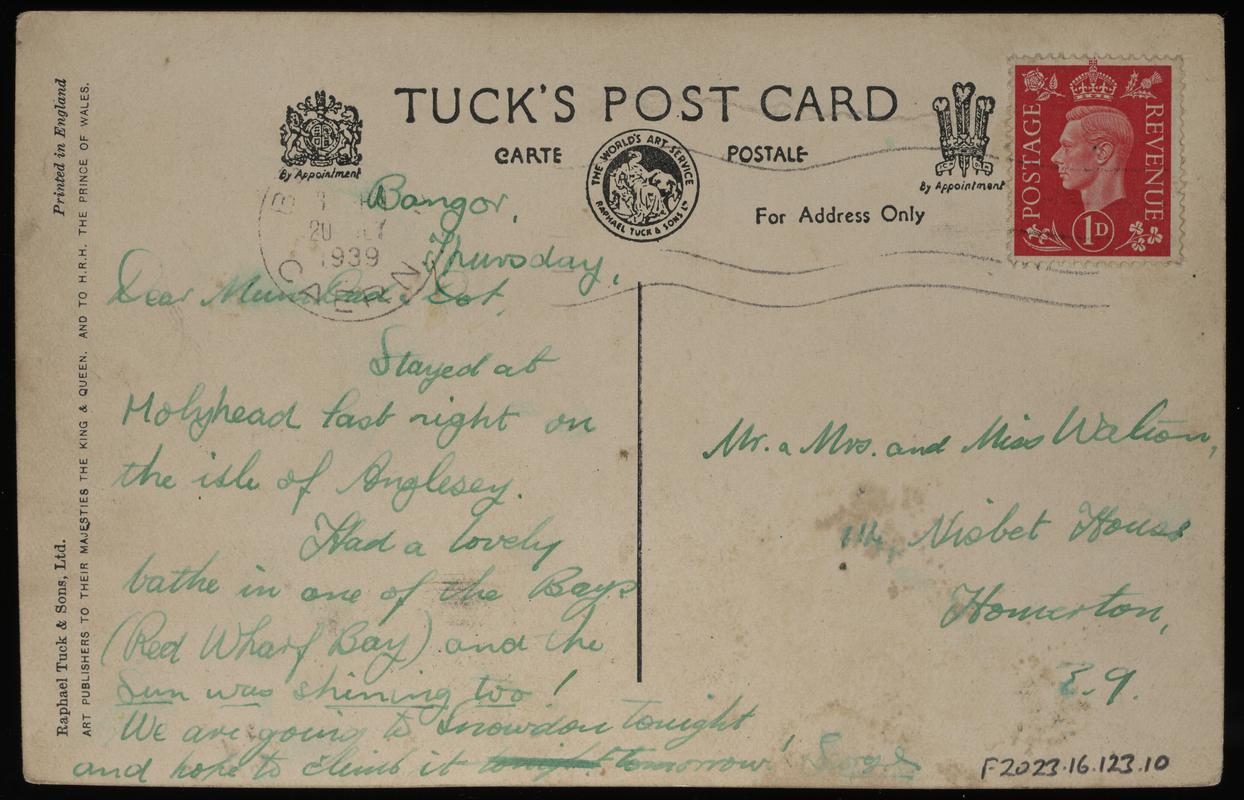 TUCK'S POST CARD
CARTE POSTALE
By Appointment
THE WORLD'S ART SERVICE
RAPHAEL TUCK & SONS LD
By Appointment
For Address Only
POSTAGE REVENUE
1D
20
1939
Printed in England
Raphael Tuck & Sons, Ltd.
ART PUBLISHERS TO THEIR MAJESTIES THE KING & QUEEN. AND TO H.R.H. THE PRINCE OF WALES.
Bangor,
Thursday,
Dear
Stayed at
Holyhead last night on
the isle of Anglesey.
Had a lovely
bathe in one of the Bays
(Red Wharf Bay) and the
sun was shining too!
We are going to Snowdon tonight
and hope to climb it tonight tomorrow!
Mr. a Mrs. and Miss Walton,
Nisbet House
Homerton,
E.9.
F2023.16.123.10